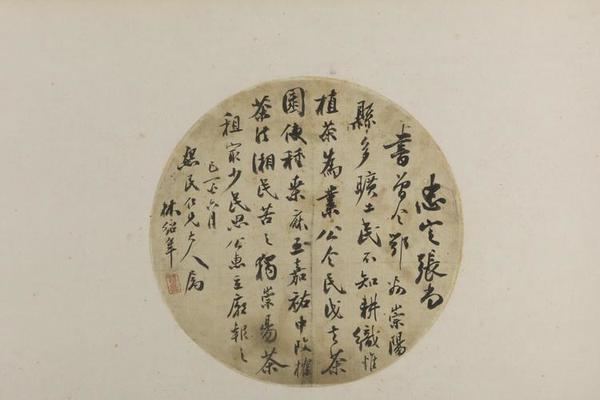 忠定張尚
書曾令鄂州崇陽
縣多曠土民不知耕織惟
植茶為業公令民伐去茶
園使種桑麻至嘉祐中改榷
茶法湘民苦之獨崇陽茶
租最少民思公惠立廟報之
己巳六月
熙民仁兄大人屬
林紹年